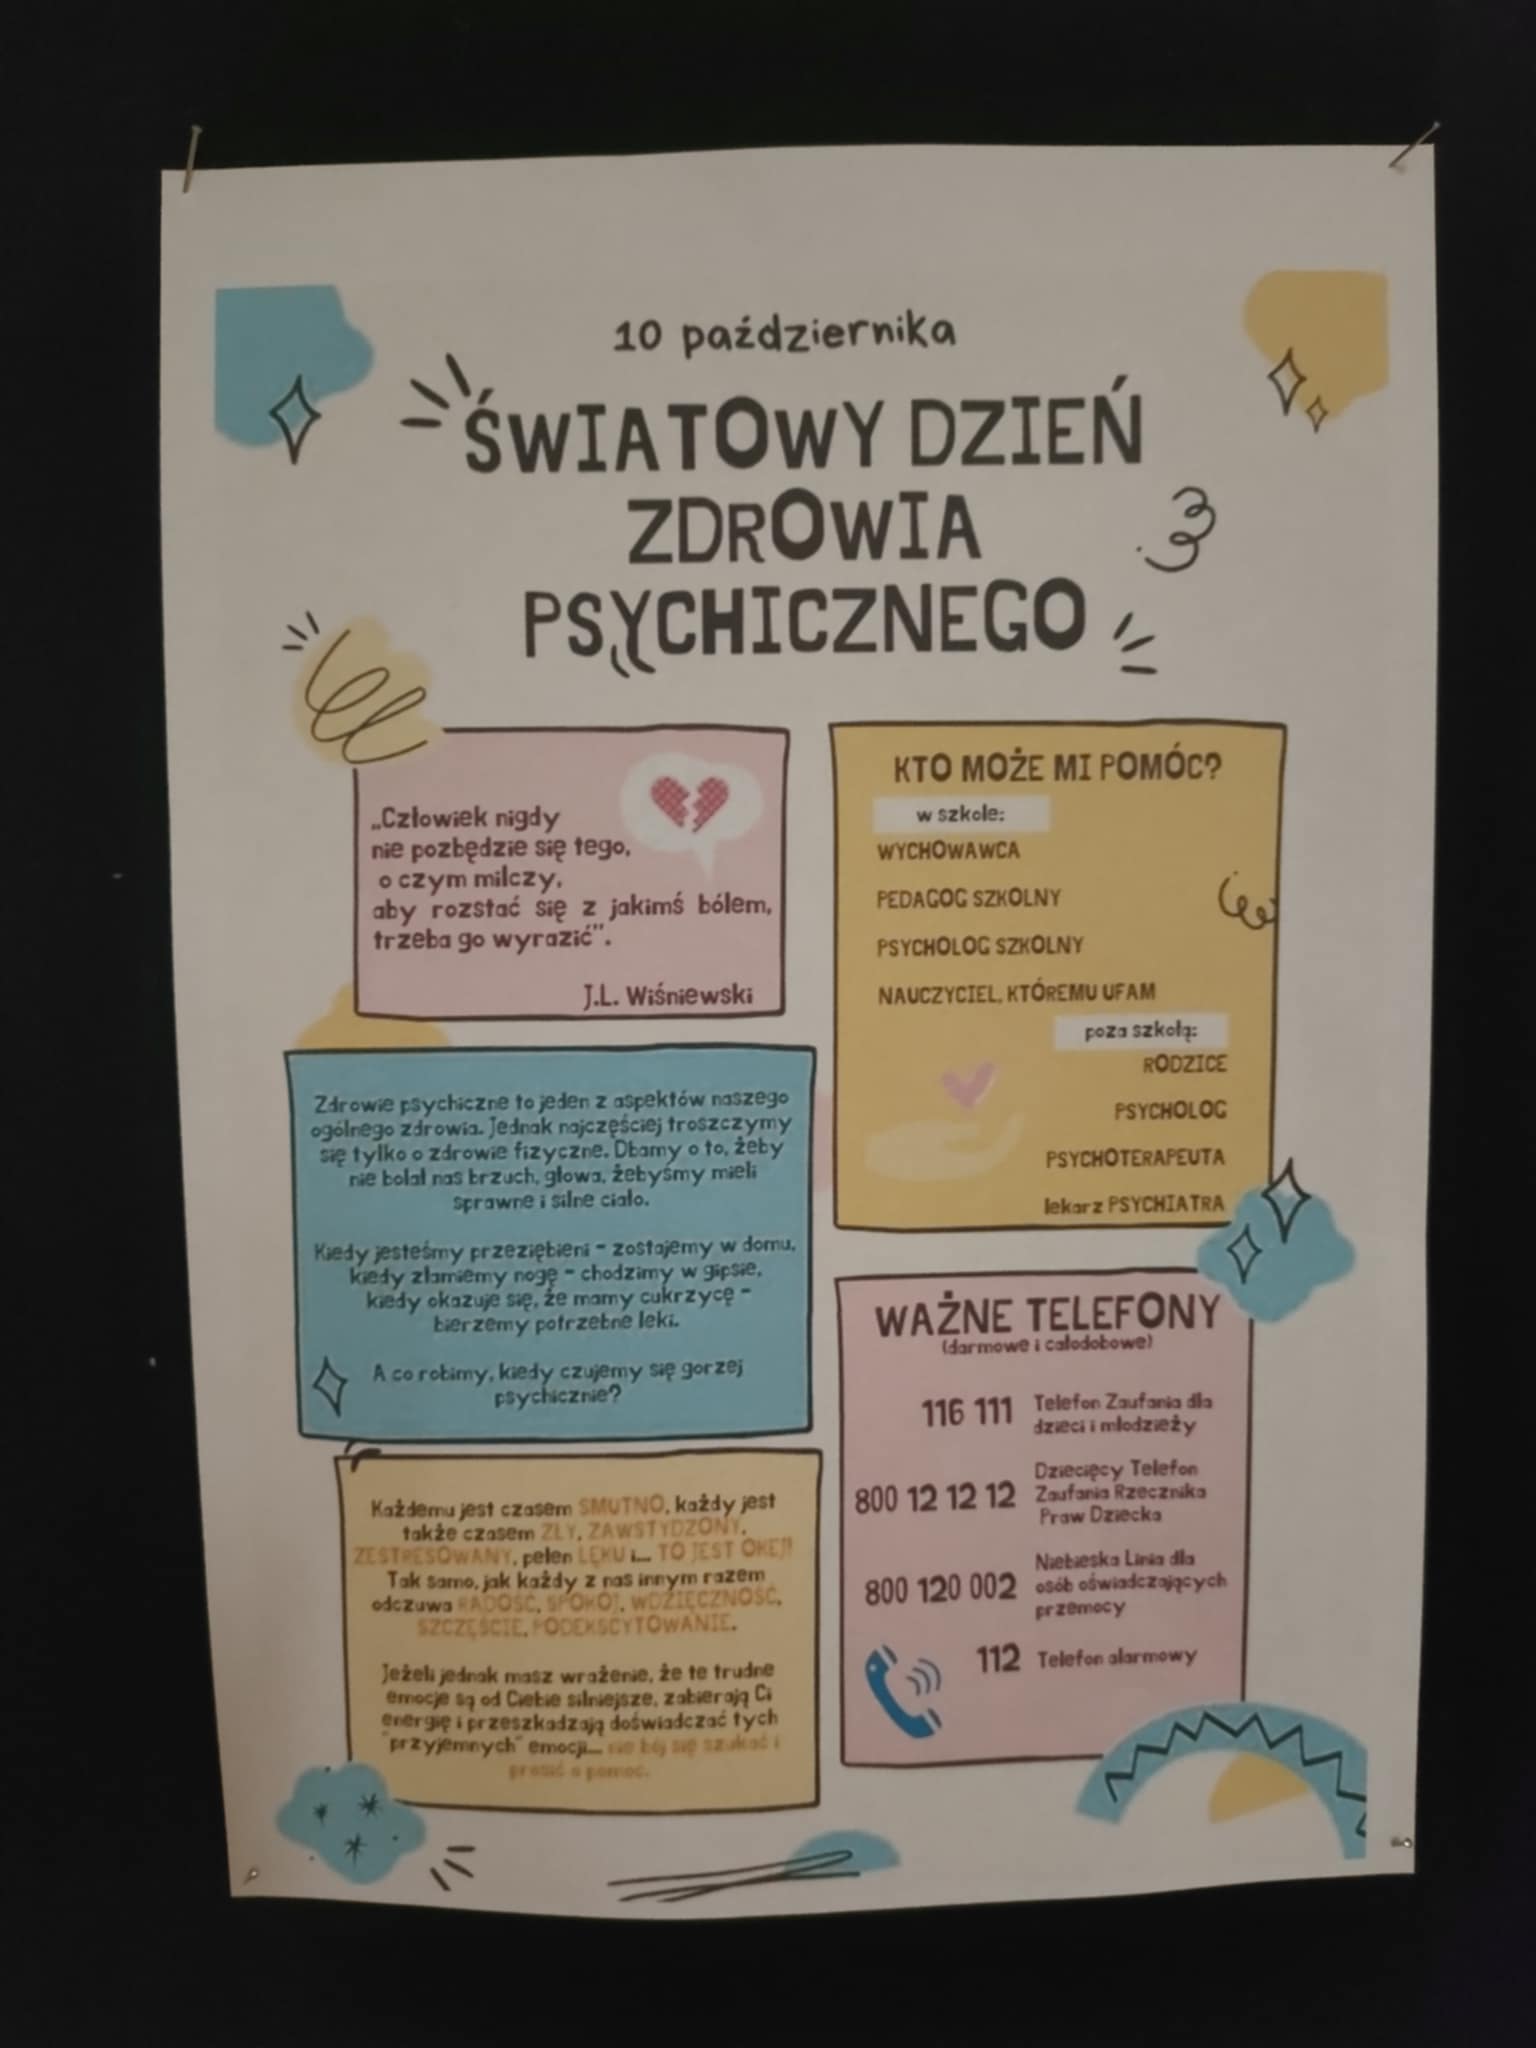 10 października
ŚWIATOWY DZIEŃ
ZDROWIA
PSYCHICZNEGO
„Człowiek nigdy
nie pozbędzie się tego,
o czym milczy,
aby rozstać się z jakimś bólem,
trzeba go wyrazić”.
J.L. Wiśniewski
Zdrowie psychiczne to jeden z aspektów naszego
ogólnego zdrowia. Jednak najczęściej troszczymy
się tylko o zdrowie fizyczne. Dbamy o to, żeby
nie bolał nas brzuch, głowa, żebyśmy mieli
sprawne i silne ciało.
Kiedy jesteśmy przeziębieni - zostajemy w domu,
kiedy złamiemy nogę - chodzimy w gipsie,
kiedy okazuje się, że mamy cukrzycę -
bierzemy potrzebne leki.
A co robimy, kiedy czujemy się gorzej
psychicznie?
Każdemu jest czasem SMUTNO, każdy jest
także czasem ZŁY, ZAWSTYDZONY,
ZESTRESOWANY, pełen LĘKU i... TO JEST OKEJ!
Tak samo, jak każdy z nas innym razem
odczuwa RADOŚĆ, SPOKÓJ, WDZIĘCZNOŚĆ,
SZCZĘŚCIE, PODEKSCYTOWANIE.
Jeżeli jednak masz wrażenie, że te trudne
emocje są od Ciebie silniejsze, zabierają Ci
energię i przeszkadzają doświadczać tych
"przyjemnych" emocji... nie bój się szukać i
prosić o pomoc.
KTO MOŻE MI POMÓC?
w szkole:
WYCHOWAWCA
PEDAGOG SZKOLNY
PSYCHOLOG SZKOLNY
NAUCZYCIEL, KTÓREMU UFAM
poza szkołą:
RODZICE
PSYCHOLOG
PSYCHOTERAPEUTA
lekarz PSYCHIATRA
WAŻNE TELEFONY
(darmowe i całodobowe)
116 111 Telefon Zaufania dla
dzieci i młodzieży
800 12 12 12 Dziecięcy Telefon
Zaufania Rzecznika
Praw Dziecka
800 120 002 Niebieska Linia dla
osób oświadczających
przemocy
112 Telefon alarmowy